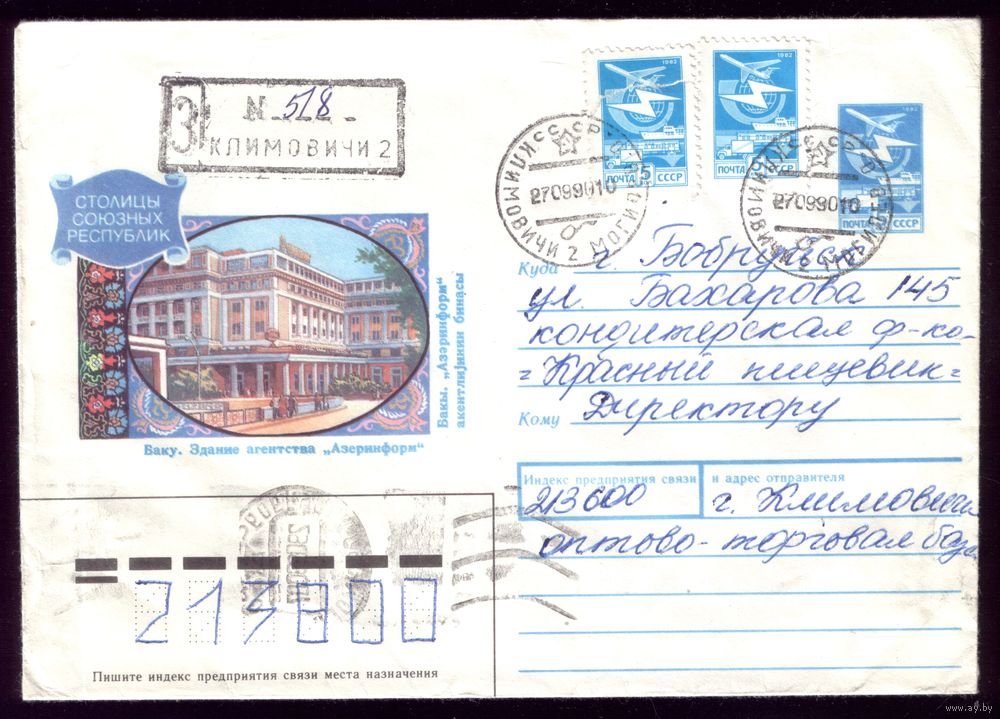 З
N 518
КЛИМОВИЧИ 2
СТОЛИЦЫ
СОЮЗНЫХ
РЕСПУБЛИК
Бакы. „Азәринформ“
аҝентлијинин бинасы
Баку. Здание агентства „Азеринформ“
1982
ПОЧТА 5 СССР
1982
ПОЧТА СССР
1982
СССР
СССР КЛИМОВИЧИ 2 МОГИЛЕВ
27099010
б
КЛИМОВИЧИ
27099010
Куда г. Бобруйск
ул. Бахарова 145
кондитерская ф-ка
=Красный пищевик=
Кому Директору
Индекс предприятия связи и адрес отправителя
213600 г. Климовичи
оптово-торговая база
213800
Пишите индекс предприятия связи места назначения
www.ay.by